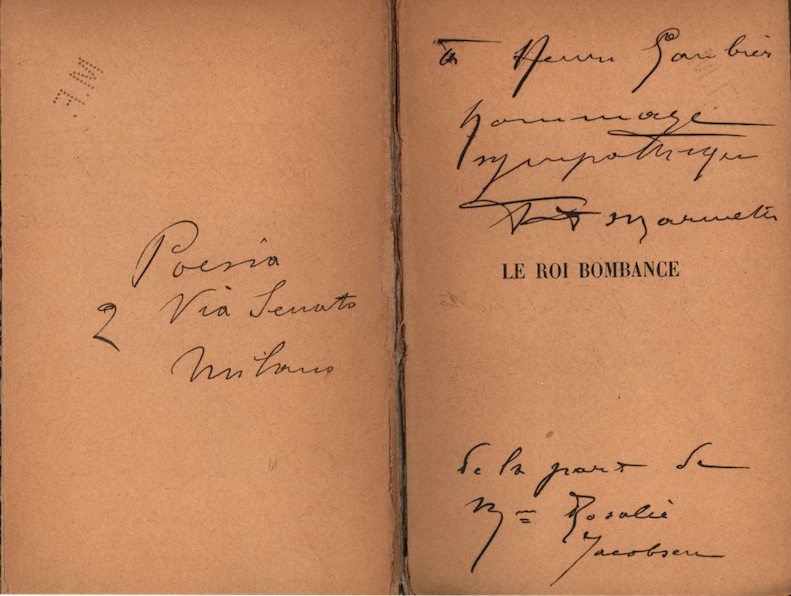 M.F.
Poesia
2 Via Senato
Milano
à Henri
hommage
sympathique
FT Marinetti
LE ROI BOMBANCE
de la part de
Mme Rosalie
Jacobsen